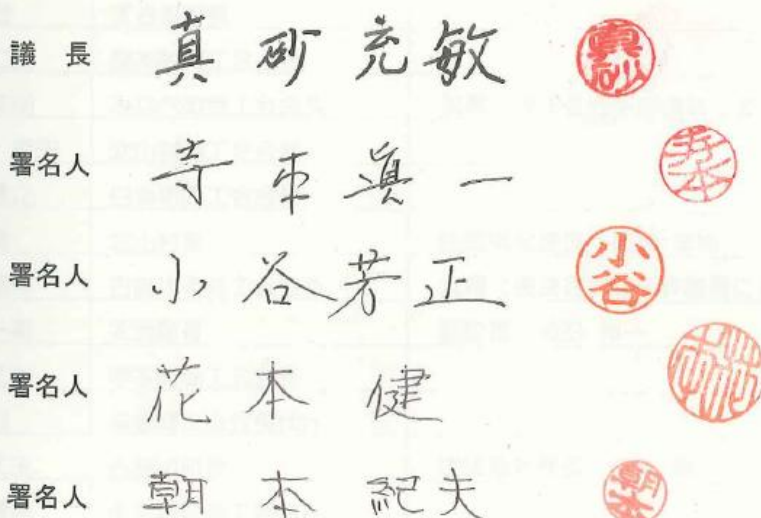 議 長 真 砂 充 敏 真砂
署名人 寺 本 眞 一 寺本
署名人 小 谷 芳 正 小谷
署名人 花 本 健 花本
署名人 朝 本 紀 夫 朝本